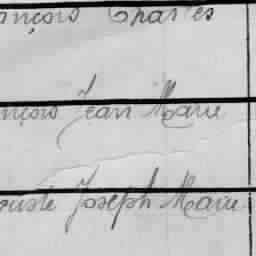 ançois Charles
nçois Jean Marie
ouste Joseph Marie